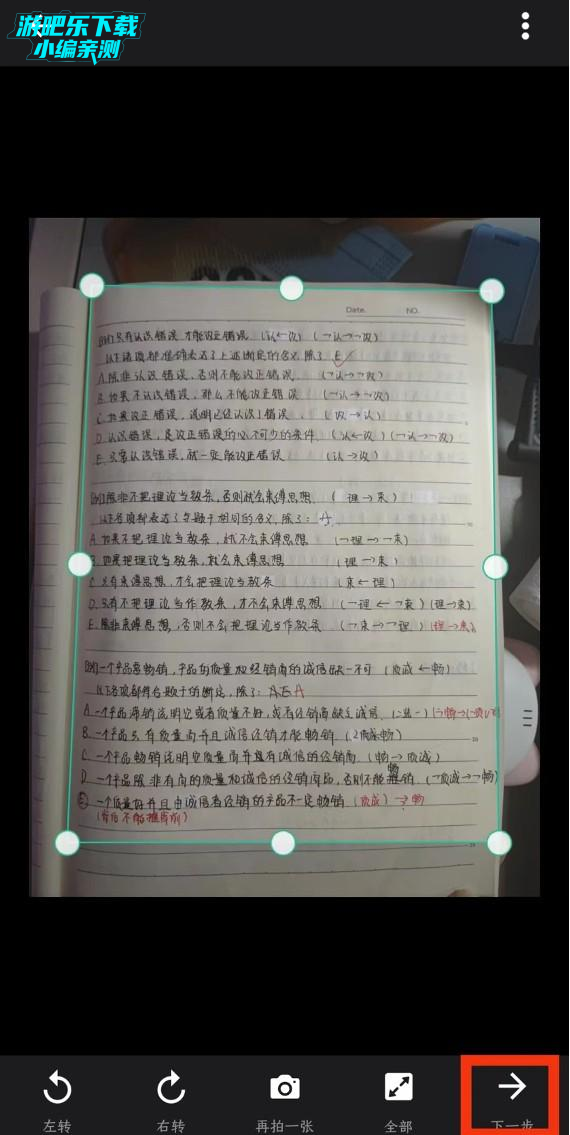 游吧乐下载
小编亲测
Date. NO.
例1只有认识错误才能改正错误 (认←改) (¬认→¬改)
以下诸项都准确表达了上述断定的含义,除了 E
A.除非认识错误,否则不能改正错误 (¬认→¬改)
B.如果不认识错误,那么不能改正错误 (¬认→¬改)
C.如果改正错误,说明已经认识了错误 (改→认)
D.认识错误,是改正错误的必不可少的条件 (认←改)(¬认→¬改)
E.只要认识错误,就一定能改正错误 (认→改)
除非不把理论当教条,否则就会束缚思想. (理→束)
以下各项都表达了与题干相同的含义,除了: A
A.如果不把理论当教条,就不会束缚思想 (¬理→¬束)
B.如果把理论当教条,就会束缚思想 (理→束)
C.只有束缚思想,才会把理论当教条 (束←理)
D.只有不把理论当作教条,才不会束缚思想 (¬理←¬束)(理→束)
E.除非束缚思想,否则不会把理论当作教条 (¬束→¬理)(理→束)
一个产品要畅销,产品的质量和经销商的诚信缺一不可 (质诚←畅)
以下各项都符合题干的断定,除了: A
A.一个产品滞销说明它或者质量不好,或者经销商缺乏诚信
B.一个产品只有质量高并且诚信经销才能畅销
C.一个产品畅销说明它质量高并且有诚信的经销商 (畅→质诚)
D.一个产品除非有高的质量和诚信的经销商,否则不能畅销 (¬质诚→¬畅)
E.一个质量好并且由诚信者经销的产品不一定畅销 (质诚)→畅
(肯后不能推肯前)
左转 右转 再拍一张 全部 下一步